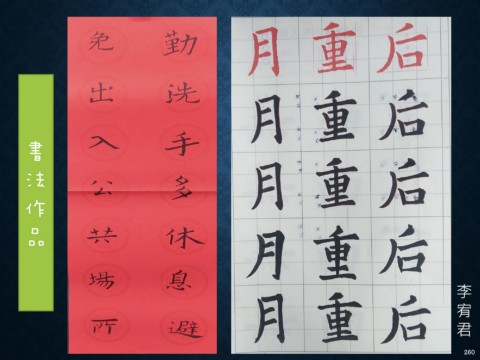 書法作品
勤洗手多休息避
免出入公共場所
后后后后后
重重重重重
月月月月月
李宥君
260